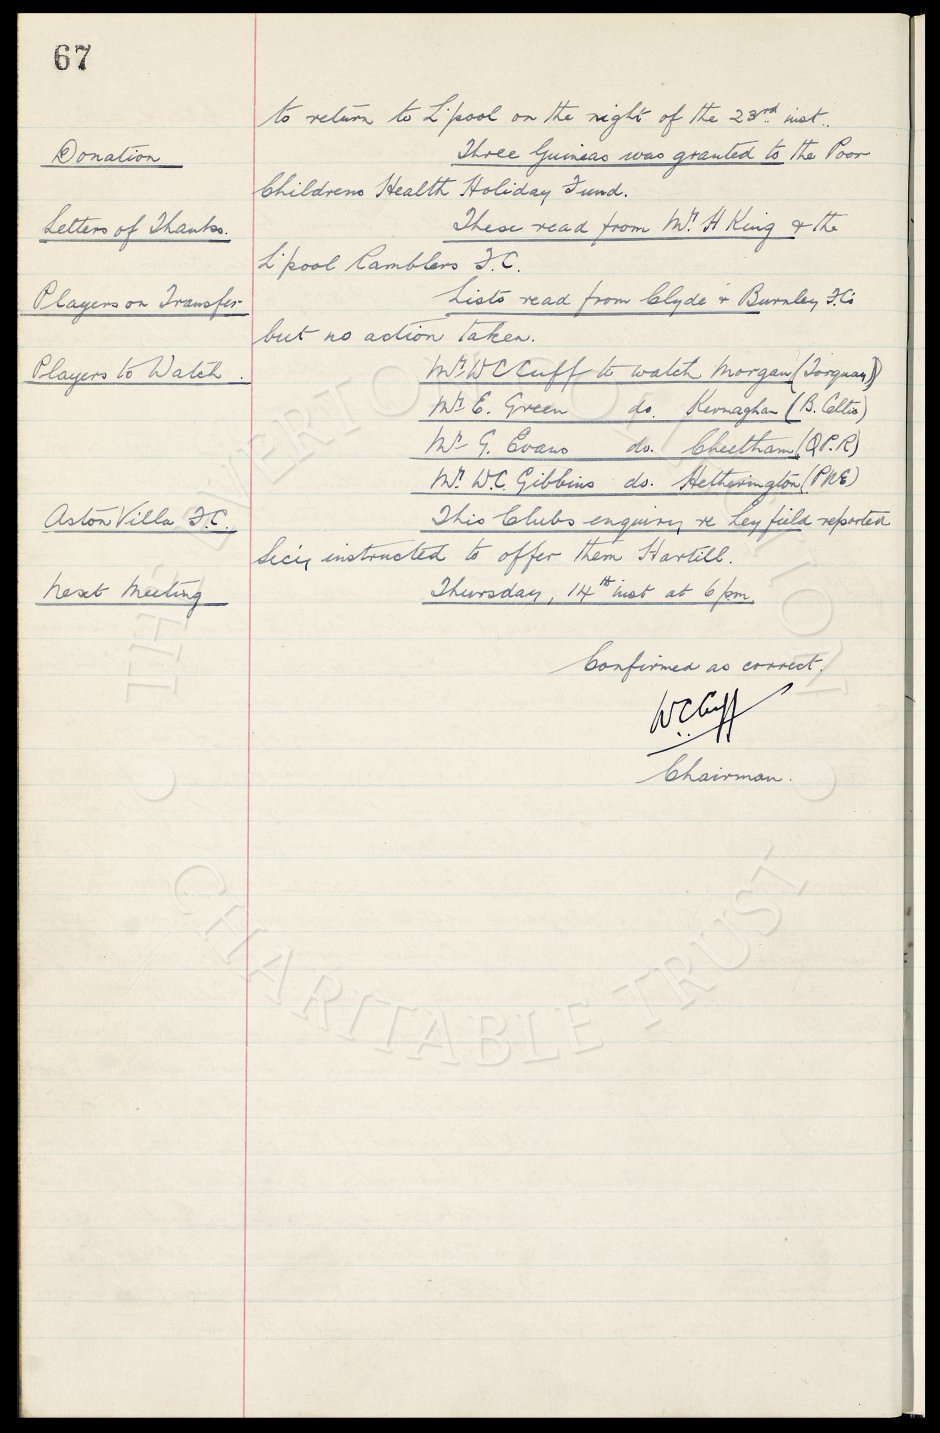 67
to return to L'pool on the night of the 23rd inst.
Donation Three Guineas was granted to the Poor
Childrens Health Holiday Fund.
Letters of Thanks. These read from Mr. H King & the
L'pool Ramblers F.C.
Players on Transfer Lists read from Clyde & Burnley F.Cs
but no action taken.
Players to Watch. Mr. W C Cuff to watch Morgan (Torquay)
Mr. E. Green do. Kernaghan (B. Celtic)
Mr G. Evans do. Cheetham (Q.P.R)
Mr. W.C. Gibbins do. Hetherington (PNE)
Aston Villa F.C. This Clubs enquiry re Leyfield reported
Secy instructed to offer them Hartill.
Next Meeting Thursday, 14th inst at 6 pm.
Confirmed as correct.
W C Cuff
Chairman.
THE EVERTON COLLECTION
CHARITABLE TRUST